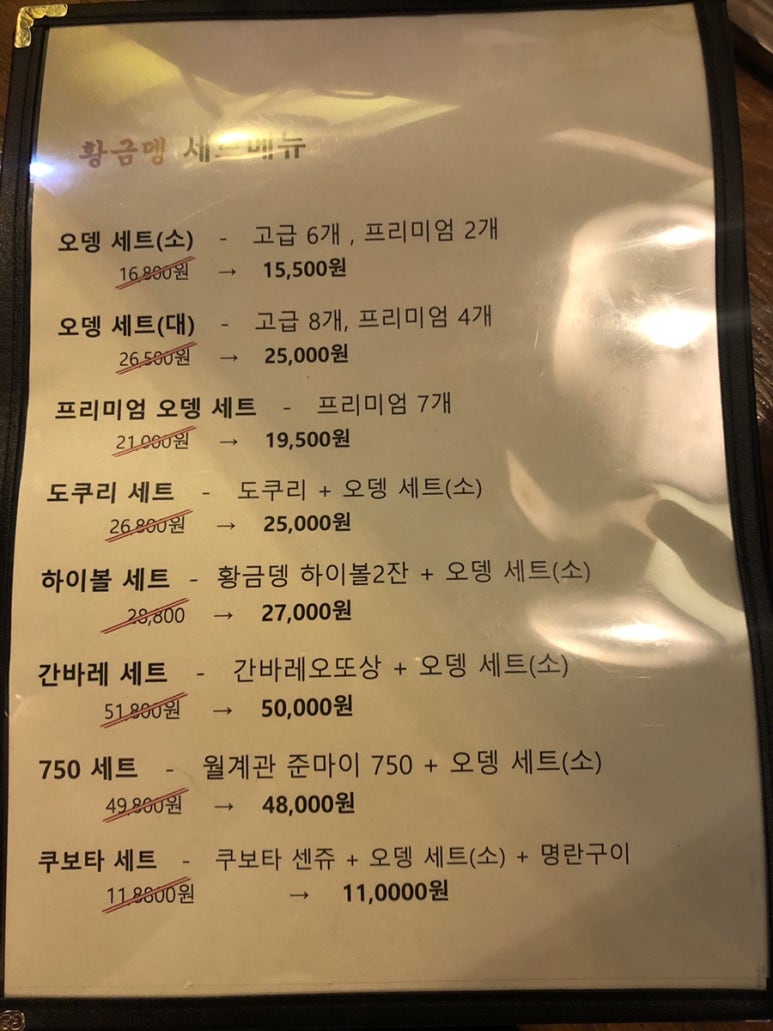 황금뎅 세트메뉴
오뎅 세트(소) - 고급 6개 , 프리미엄 2개
16,800원 → 15,500원
오뎅 세트(대) - 고급 8개, 프리미엄 4개
26,500원 → 25,000원
프리미엄 오뎅 세트 - 프리미엄 7개
21,000원 → 19,500원
도쿠리 세트 - 도쿠리 + 오뎅 세트(소)
26,800원 → 25,000원
하이볼 세트 - 황금뎅 하이볼2잔 + 오뎅 세트(소)
28,800 → 27,000원
간바레 세트 - 간바레오또상 + 오뎅 세트(소)
51,800원 → 50,000원
750 세트 - 월계관 준마이 750 + 오뎅 세트(소)
49,800원 → 48,000원
쿠보타 세트 - 쿠보타 센쥬 + 오뎅 세트(소) + 명란구이
11,8800원 → 11,0000원